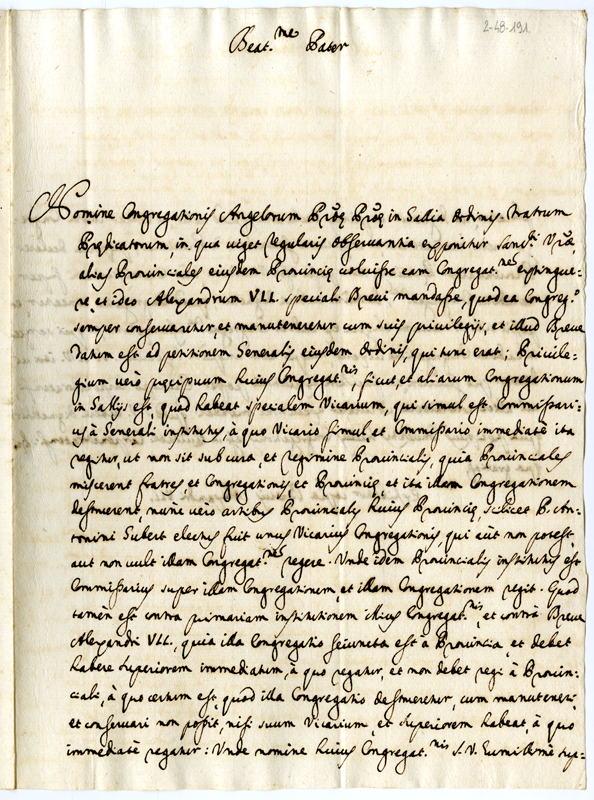 2-48-191.
Beat.me Pater
Nomine Congregationis Angelorum in Gallia Ordinis Fratrum
Prędicatorum, in qua uiget regularis obseruantia exponitur Sanc.ti V.rę,
alias Prouinciales eiusdem Prouincię uoluisse eam Congregat.nem extingue-
re, et ideo Alexandrum VII. speciali Breui mandasse, quod ea Congreg.o
semper conseruaretur, et manuteneretur cum suis priuilegijs, et illud Breue
datum est ad petitionem Generalis eiusdem Ordinis, qui tunc erat; Priuile-
gium uero pręcipuum huius Congregat.nis, sicut et aliarum Congregationum
in Gallijs est, quod habeat specialem Vicarium, qui simul est Commissari-
us à Generali institutus, à quo Vicario simul, et Commissario immediatè ita
regitur, ut non sit sub cura, et regimine Prouincialis, quia Prouinciales
miscerent fratres, et Congregationis, et Prouincię, et ita illam Congregationem
destruerent nunc uero artibus Prouincialis huius Prouincię, scilicet P. An-
tonini Gubert electus fuit unus Vicarius Congregationis qui aut non potest,
aut non uult illam Congregat.nem regere. Vnde idem Prouincialis institutus est
Commissarius super illam Congregationem, et illam Congregationem regit. Quod
tamen est contra primariam institutionem illius Congregat.nis, et contrà Breue
Alexandri VII., quia illa Congregatio seiuncta est a Prouincia, et debet
habere superiorem immediatum, à quo regatur, et non debet regi à Prouin-
ciali, à quo certum est, quod illa Congregatio destrueretur, cum manuteneri,
et conseruari non possit, nisi suum Vicarium, et superiorem habeat, à quo
immediatè regatur: Vnde nomine huius Congregat.nis S. V. humillimè sup-